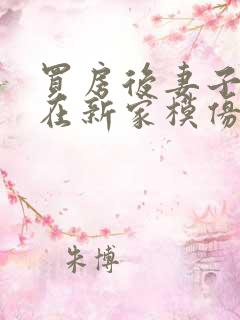 買房後妻子
在新家模傷
朱博